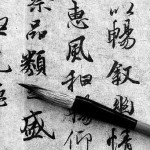 以暢敘幽情
惠風和暢仰
察品類盛